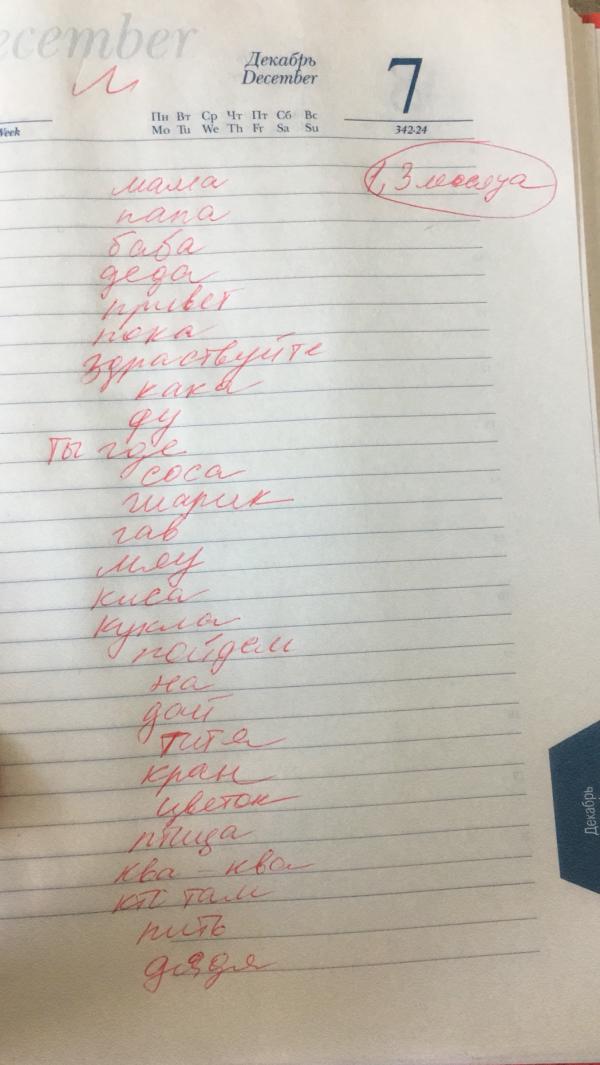 ecember
Декабрь
December
7
Пн Вт Ср Чт Пт Сб Вс
Mo Tu We Th Fr Sa Su
Week
342-24
1,3 месяца
мама
папа
баба
деда
привет
пока
здраствуйте
кака
фу
ты где
соса
шарик
гав
мяу
киса
кукла
пойдем
на
дай
титя
кран
цветок
птица
ква - ква
кто там
пить
дядя
Декабрь